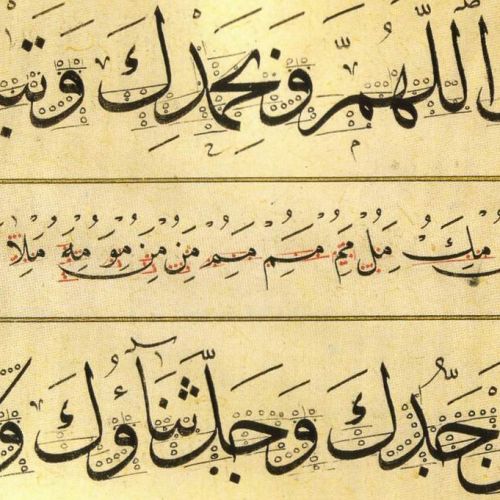 اللّهُمَّ وَبِحَمْدِكَ وَتَبَـ
مك مل مم مم مم من من مو مه ملا
جَدُّكَ وَجَلَّ ثَنَاؤُكَ وَلَا